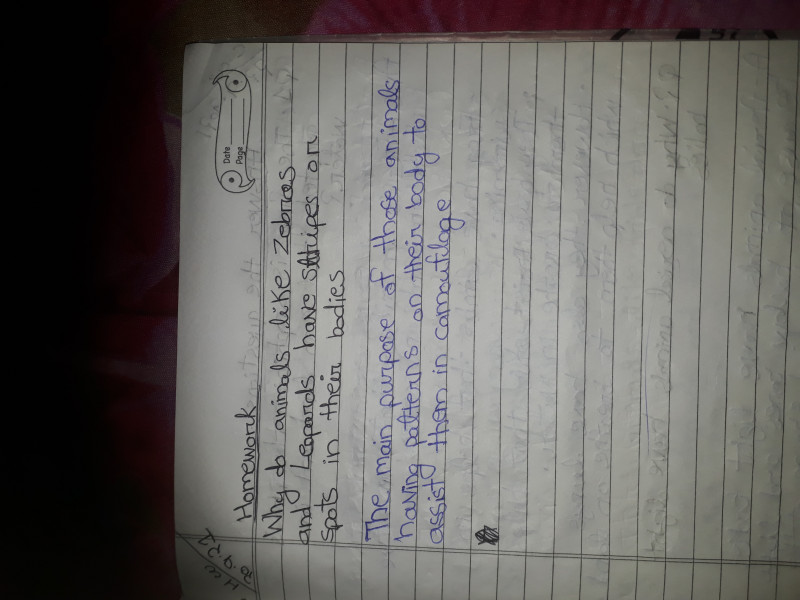 Date
Page
H.W
Homework
Why do animals like Zebras
and Leopards have stripes or
spots in their bodies
The main purpose of those animals
having patterns on their body to
assist them in camouflage